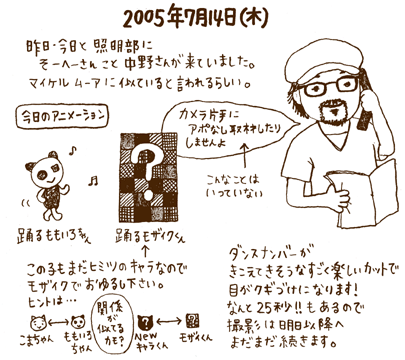 2005年7月14日(木)
昨日・今日と照明部に
そーへーさんこと中野さんが来ていました。
マイケルムーアに似ていると言われるらしい。
今日のアニメーション
カメラ片手に
アポなし取材したり
しませんよ
こんなことは
いっていない
♪
♫
?
踊るももいろちゃん
踊るモザイクくん
この子もまだヒミツのキャラなので
モザイクでおゆるし下さい。
ヒントは…
こまちゃん
ももいろ
ちゃん
関係
が
似てる
かも?
?
New
キャラくん
モザイくん
ダンスナンバーが
きこえてきそうなすごく楽しいカットで
目がクギづけになります!
なんと25秒!!もあるので
撮影は明日以降へ
まだまだ続きます。